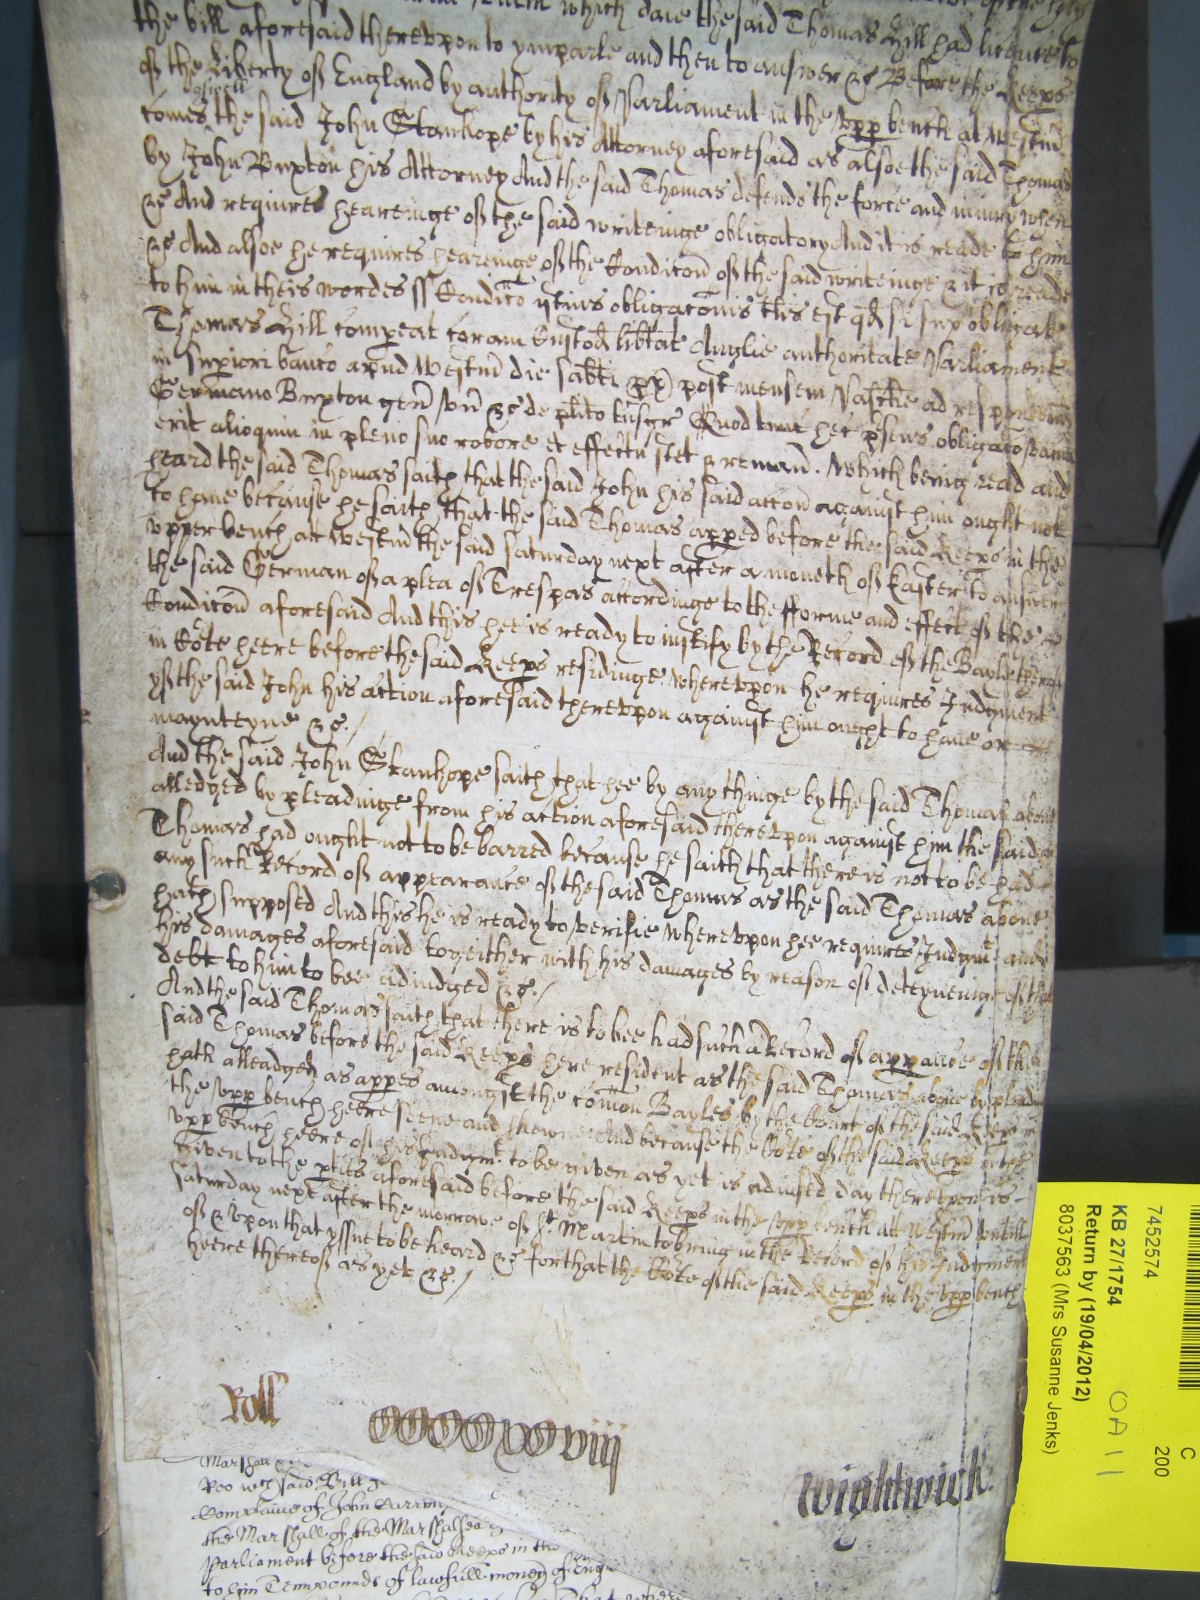 which daie the said Thomas Hill had licence to
the bill aforesaid therevpon to ymparle and then to answer &c Before the Keeps
of the Liberty of England by authority of Parliament in the vpp bench at Westm
comes the said John Stanhope by his Attorney aforesaid as alsoe the said Thomas
by John Buxton his Attorney And the said Thomas defends the force and iniury when
&c And requires heareinge of the said writeinge obligatory And it is reade to him
&c And alsoe he requires heareinge of the Condicon of the said writeinge & it is reade
to him in theis wordes ss Condico istius obligaconis tlis est qd si sup obligat
Thomas Hill compeat coram Custod libtat Anglie authoritate Parliament
in supiori banco apud Westm die Sabti px post mensem Pasche ad respondend
Germano Buxton gen vn &c de plito Tnsgr Quod tunc hec psens obligaco vacua
erit alioquin in pleno suo robore et effectu stet & reman. Which being read and
heard the said Thomas saith that the said John his said accon against him ought not
to haue because he saith that the said Thomas apped before the said Keeps in the
vpper bench att Westm the said Saturday next after a moneth of Easter to answer
the said German of a plea of Trespas accordinge to the fforme and effect of the
Condicon aforesaid And this hee is ready to iustify by the Record of the Bayle thereof
in Cote heere before the said Keeps residinge. Wherevpon he requires Judgment
yf the said John his action aforesaid therevpon against him ought to haue or
maynteyne &c./
And the said John Stanhope saith that hee by any thinge by the said Thomas aboue
alledged by pleadinge from his action aforesaid therevpon against him the said
Thomas had ought not to be barred because he saith that there is not to be had
any such Record of appearance of the said Thomas as the said Thomas aboue
hath supposed And this he is ready to verifie Wherevpon hee requires Judgmt and
his damages aforesaid togeither with his damages by reason of deteyneing of that
debt to him to bee adiudged &c./
And the said Thomas saith that there is to bee had such a Record of appance of the
said Thomas before the said Keeps here resident as the said Thomas aboue by pleading
hath alleadged as appes amongst the comon Bayles by the Court of the said Keeps in
the vpp bench heere seene and showne And because the Cote of the said Keeps in the
vpp bench heere of his Judgmt to be given as yet is aduised day therevpon is
given to the pties aforesaid before the said Keeps in the vpp bench att Westm vntill
Saturday next after the morrow of St Martin to bring in the Record of his Judgment
of & vpon that yssue to be heard &c for that the Cote of the said Keeps in the vpp bench
heere thereof as yet &c./
Roll
Wightwick.
Marshall
Roo wch said Bill
Complaine of John
the Marshall of the Marshalsea
Parliament before the said Keeps in the
to him Tenn pounds of lawfull money of Eng
C
200
7452574
KB 27/1754
OA 11
Return by (19/04/2012)
8037563 (Mrs Susanne Jenks)